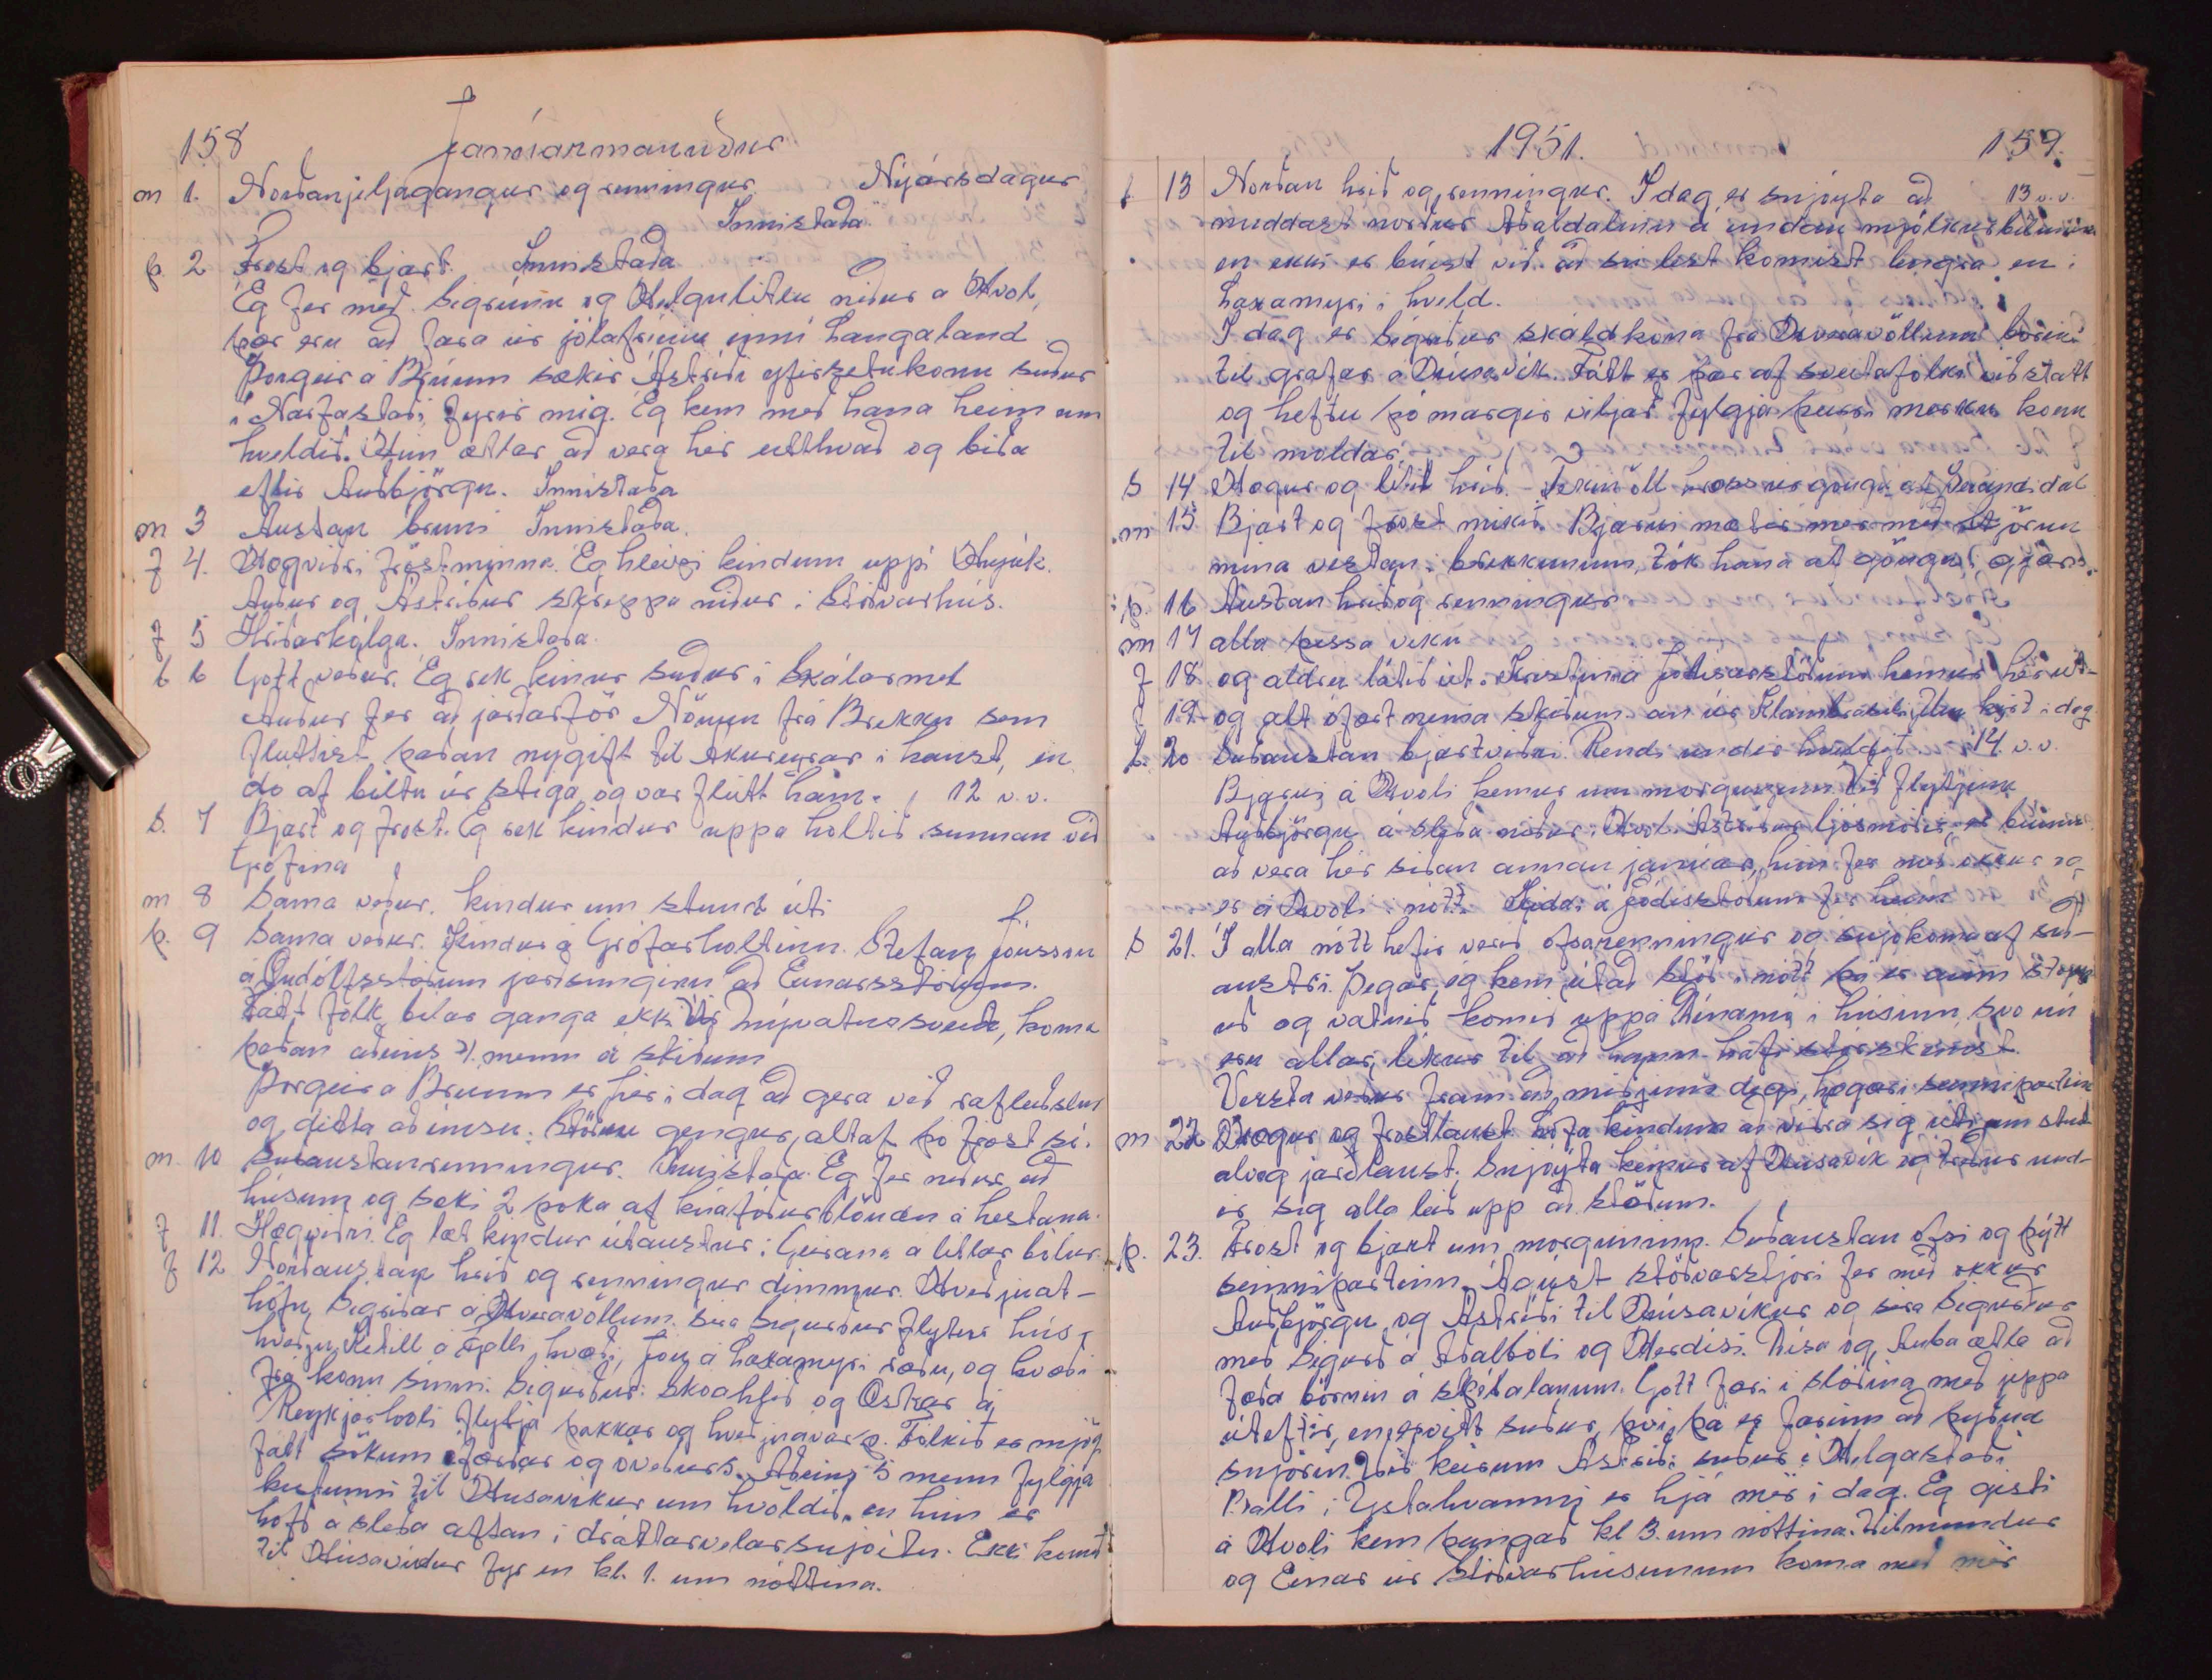 158
Janúarmánuður
m 1. Norðanjeljagangur og renningur. Nýjársdagur
Innistaða
þ. 2 Frost og bjart. Innistaða
Eg fer með Sigrúnu og Helgulitlu niður a Hvol,
þær eru að fara úr jólafríinu inní Laugaland
Þorgeir á Brúum sækir Ástriði yfirsetukonu suður
i Narfastaði fyrir mig. Eg kem með hana heim um
kveldið. Hún ætlar að vera hér eitthvað og biða
eftir Auðbjörgu. Innistaða
m 3 Austan bruni Innistaða.
f 4. Hogviðri frostminna. Eg hleypi kindum uppi
Auður og Astriður skreppa niður i Stöðvarhús.
f 5 Hriðarkólga. Innistaða.
L 6 Gott veður. Eg rek kinur suður i Skálarmel
Auður fer að jarðarför Nönnu frá Brekku sem
fluttist þaðan nýgift til Akureyrar i haust, en
do af biltu úr stiga og var flutt hám. 12 v.v.
S. 7 Bjart og frost. Eg rek kindur uppa holtið sunnan við
Grófina
m 8 Sama veður. kindur um stund úti
þ. 9 Sama veður. Kindur á Grófarholtinu. Stefan Jónsson
á Öndólfsstöðum jarðsunginn að Einarsstöðum.
Fátt fólk, bilar ganga ekki úr Mývatnssveit, koma
þaðan aðeins 7 menn á skiðum
Þorgeir a Brúum er hér i dag að gera við rafleiðslur
og ditta að imsu. Stöðin gengur altaf þó frost sé.
m. 10 Suðaustanrenningur. Innistaða. Eg fer niður að
húsum og sæki 2 poka af kúafóðurblöndu á hestana.
f 11. Hægviðri. Eg læt kindur útaustur i Geirana a litlar bólur.
f 12 Norðaustan hrið og renningur dimmur. Kveðjuat-
höfn Sigriðar á Hveravöllum. Séra Sigurður flytur hús-
kveðju, Ketill á Fjalli kvæði, Jón á Laxamyri ræðu, og kvæði
frá konu sinni. Sigurður skoahlið og Oskar á
Reykjarhóli flytja þakkar og kveðjuávarp. Fólkið er mjög
fátt sökum ófærðar og óveðurs. Aðeins 5 menn fylgja
kistunni til Húsavikur um kvöldið, en hún er
höfð á sleða aftan i dráttarvelar snjóítu. Ekki komið
til Húsavíkur fyr en kl. 1. um nóttina.
1951.
159.
L 13 Norðan hrið og renningur. I dag er snjóyta að 13 v.v.
muddast norður Aðaldalinn á undan mjólkurbílunum
en ekki er búist við að sú lest komist lengra en i
Laxamyri i kveld.
I dag er Sigriður skáldkona frá Hveravöllum borin
til grafar a Húsavik. Fátt er þar af sveitafólki við statt
og hefðu þó margir viljað fylgja þeirri merku konu
til moldar.
S 14. Hogur og litil hrið. - Tekin öll hross úr göngu
m 15. Bjart og frost mikið. Bjarni mætir mer með Stjörnu
mina vestan i brekkunum, tók hana af göngu i gær.
þ. 16 Austan hrið og renningur
m 17 alla þessa viku
f 18 og aldrei látið út. Kristin á Jódisarstöðum kemur hér út-
f 19. og alt ofært nema skiðum. an úr Klambraseli.
L. 20 Suðaustan bjartviðri. Rendi undir kveldið. 14. v.v.
Bjarni á Hvoli kemur um morguninn. Við flytjum
Auðbjörgu á sleða niður i Hvol. Ástriður ljósmóðir er búin
að vera hér siðan annan janúar, hún fer með okkur og
er á Hvoli i nótt. á Jódisstöðum fer heim
S 21. I alla nótt hefir verið ofsarenningur og snjókoma af suð-
austri. Þegar eg kem útað Stöð i nótt þá er áinn stopp
uð og vatnið komið uppá Dinamó i húsinu, svo nú
eru allar likur til að hann hafi stórskemst.
Versta veður fram að miðjum degi, hægari seinnipartinn
m 22 Hogur og frostlaust. Lofa kindum að viðra sig úti um stud
alveg jarðlaust. Snjóýta kemur af Húsavík og treður und-
ir sig alla leið upp að Stöðum.
þ. 23. Frost og bjart um morguninn. Suðaustan ofsi og þýtt
seinnipartinn. Ágúst stöðvarstjóri fer með okkur
Auðbjörgu og Astriði til Húsavíkur og séra Sigurður
með Sigurð á Aðalbóli og Herdisi. Disa og Auba ætla að
fæða börnin á spitalanum. Gott færi i slóðina með jeppa
úteftir, en erviðt suður, þvi þá er farinn að þyðna
snjórin. Við keirum Astriði suður i Helgastaði
Balli i Ystahvammi er hjá mér i dag. Eg gisti
á Hvoli kem þangað kl 3. um nóttina. Vilmundur
og Einar úr Stöðvarhúsunum koma með mér